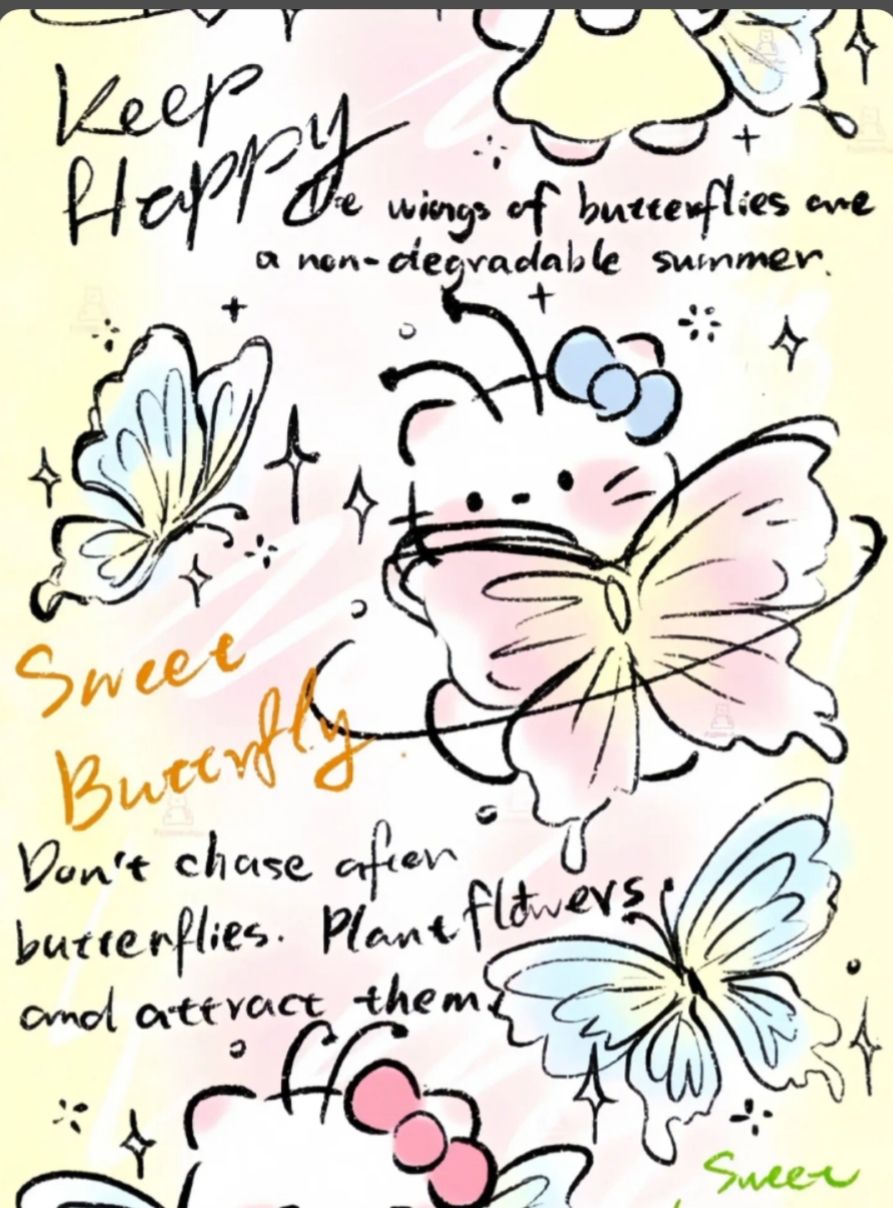 Keep
Happy
The wings of butterflies are
a non-degradable summer.
Sweet
Butterfly
Don't chase after
butterflies. Plant flowers
and attract them.
Sweet